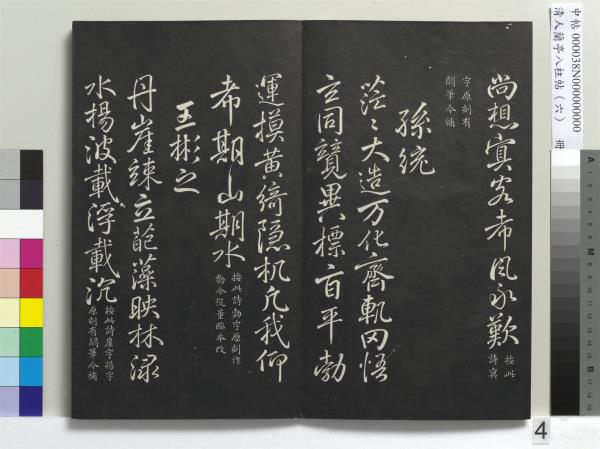 尚想冥客希風永歎按此詩冥
字原刻有
闕筆今補
孫統
茫〻大造万化齊軌罔悟
玄同競異標旨平勃
運摸黃綺隱机凡我仰
希期山期水按此詩勃字原刻作
勃今從董臨本改
王彬之
丹崖竦立葩藻映林淥
水揚波載浮載沉按此詩崖字揚字
原刻有闕筆今補
中帖 000038N000000000
清人蘭亭八柱帖（六） 冊
4